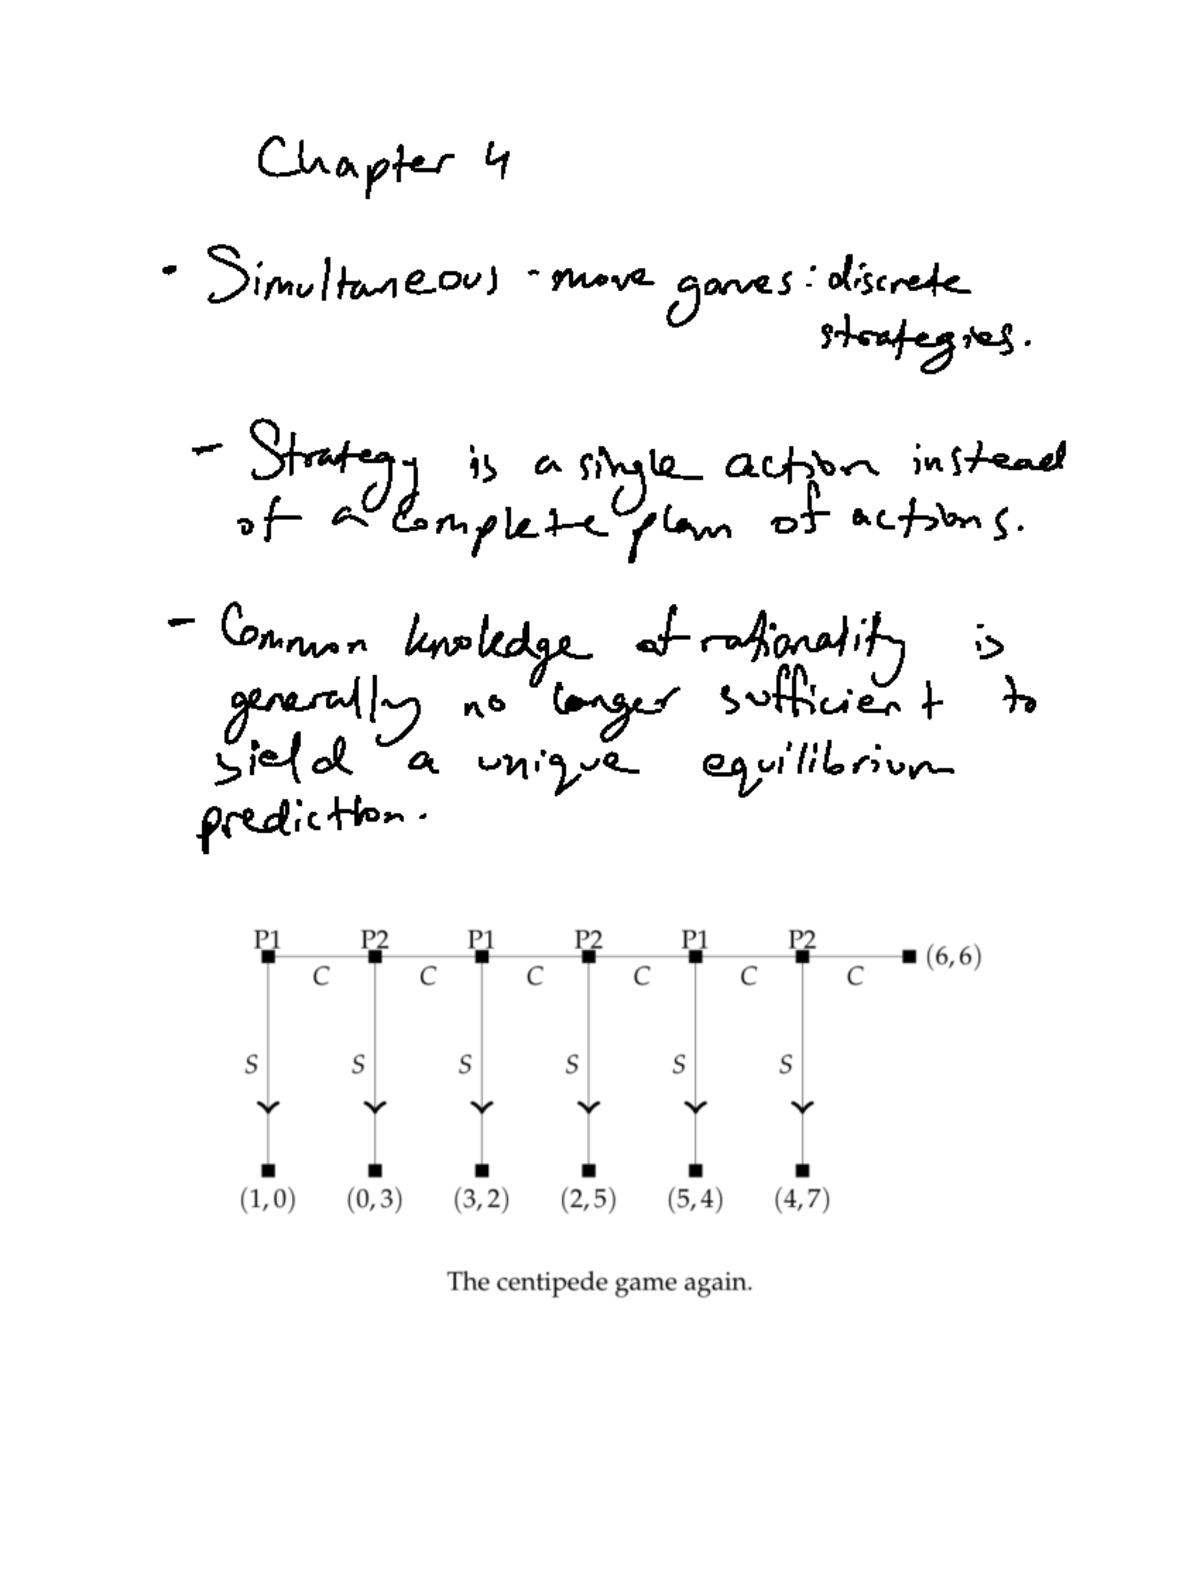 Chapter 4
· Simultaneous-move games: discrete
strategies.
- Strategy is a single action instead
of a complete plan of actions.
- Common knoledge of rationality is
generally no longer sufficient to
yield a unique equilibrium
prediction.
P1 P2 P1 P2 P1 P2 (6,6)
C C C C C C
S S S S S S
(1,0) (0,3) (3,2) (2,5) (5,4) (4,7)
The centipede game again.